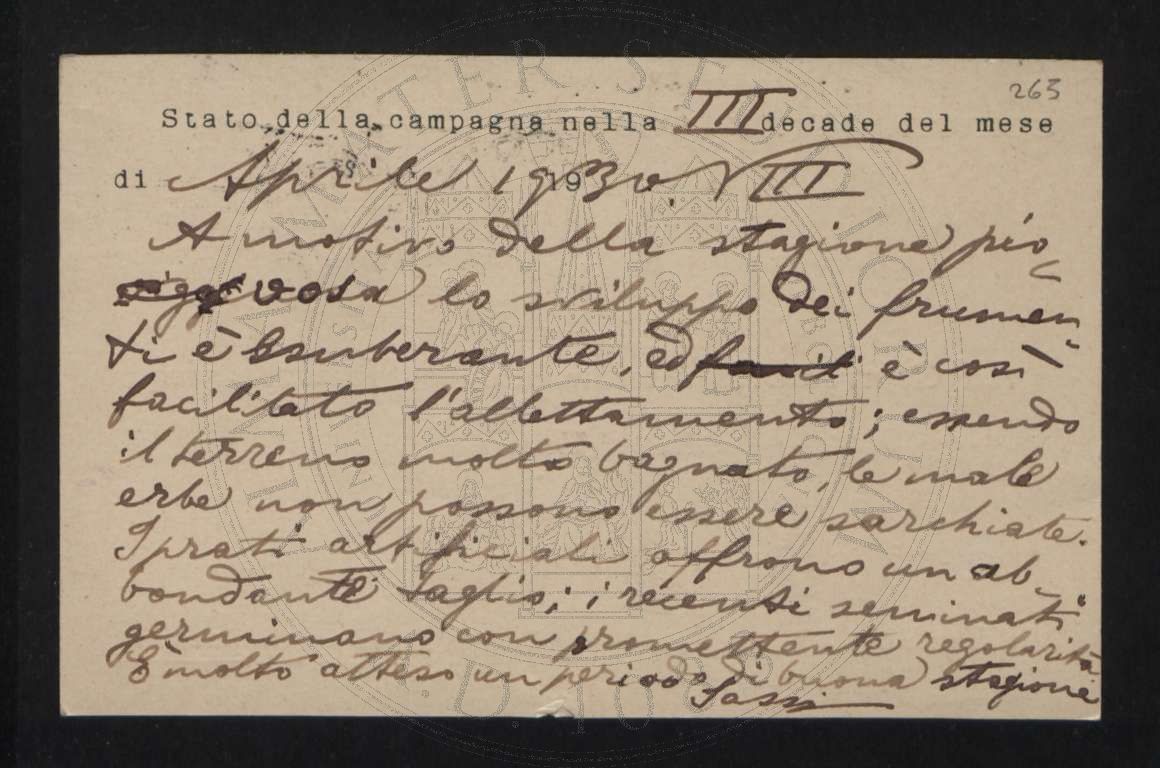 265
Stato della campagna nella III decade del mese
di Aprile 1930 VIII
A motivo della stagione pio_
vosa lo sviluppo dei frumen_
ti è Esuberante, ed è così
facilitato l'allettamento; essendo
il terreno molto bagnato, le male
erbe non possono essere sarchiate.
I prati artificiali offrono un ab_
bondante taglio; i recenti seminati
germinano con promettente regolarità
È molto atteso un periodo di buona stagione
Sassi
ALMA MATER STUDIORUM
A.D. 1088